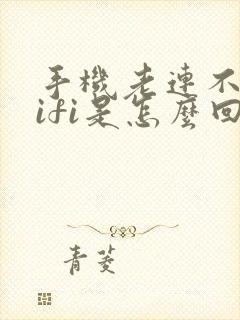 手機老連不
ifi是怎麼回
青菱